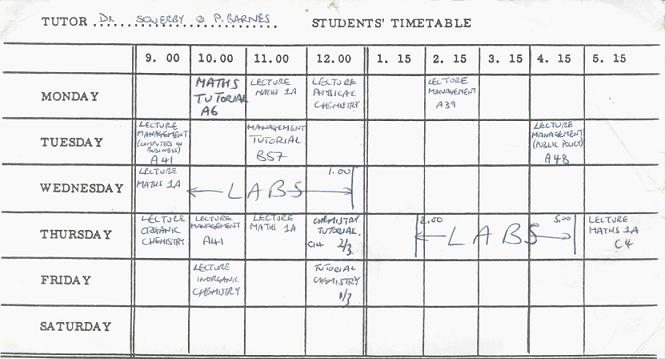 TUTOR DR SOWERBY & P. BARNES STUDENTS' TIMETABLE
9. 00 10.00 11.00 12.00 1. 15 2. 15 3. 15 4. 15 5. 15
MONDAY
MATHS
TUTORIAL
A6
LECTURE
MATHS 1A
LECTURE
PHYSICAL
CHEMISTRY
LECTURE
MANAGEMENT
A39
TUESDAY
LECTURE
MANAGEMENT
(COMPUTERS IN
BUSINESS)
A41
MANAGEMENT
TUTORIAL
B57
LECTURE
MANAGEMENT
(PUBLIC POLICY)
A48
WEDNESDAY
LECTURE
MATHS 1A
LABS
1.00
THURSDAY
LECTURE
ORGANIC
CHEMISTRY
LECTURE
MANAGEMENT
A41
LECTURE
MATHS 1A
CHEMISTRY
TUTORIAL
C14 2/3
2.00 5.00
LABS
LECTURE
MATHS 1A
C4
FRIDAY
LECTURE
INORGANIC
CHEMISTRY
TUTORIAL
CHEMISTRY
1/3
SATURDAY